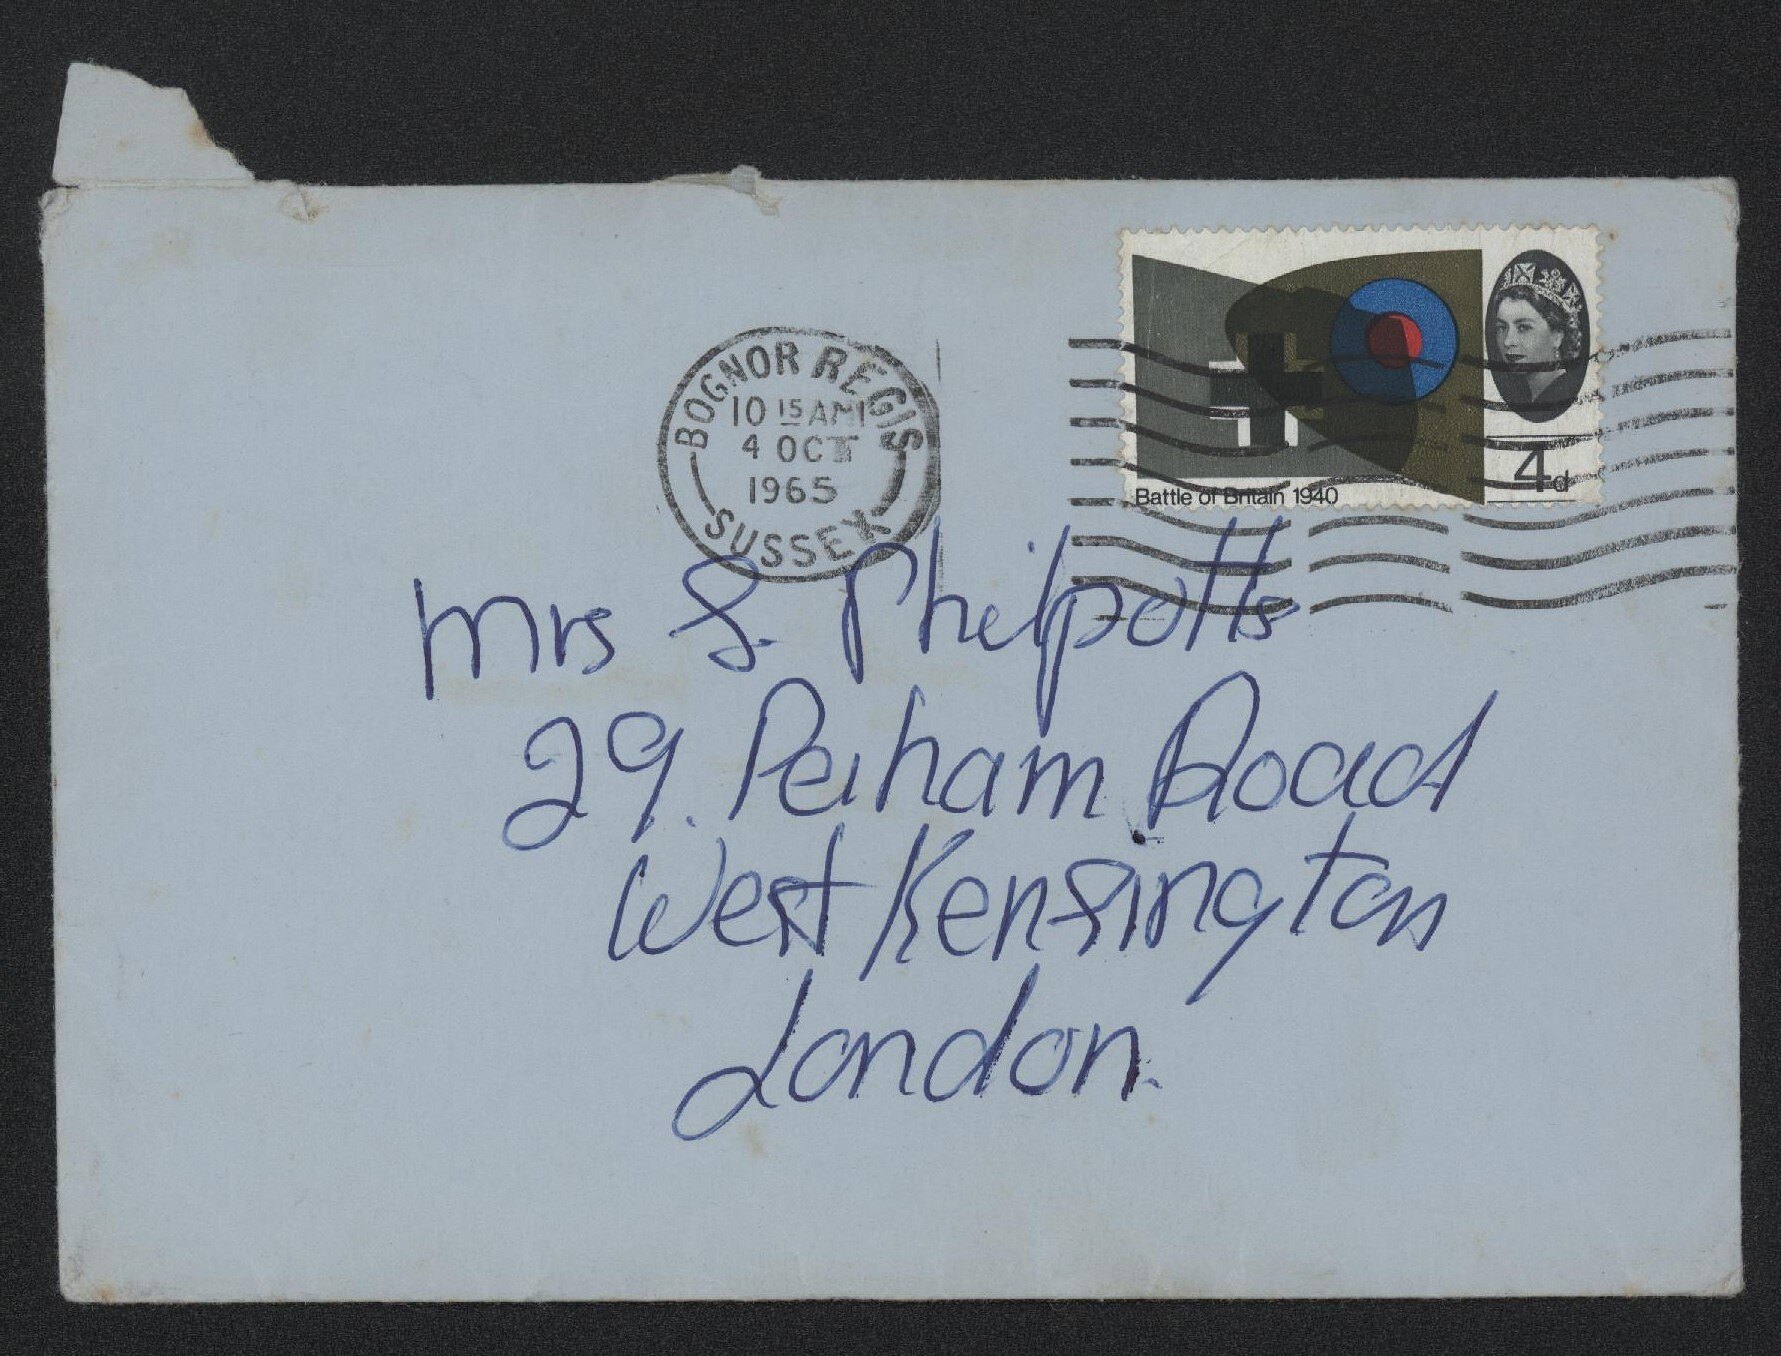 BOGNOR REGIS
10 15 AM
4 OCT
1965
SUSSEX
4d
Battle of Britain 1940
Mrs S. Philpotts
29. Perham Road
West Kensington
London.